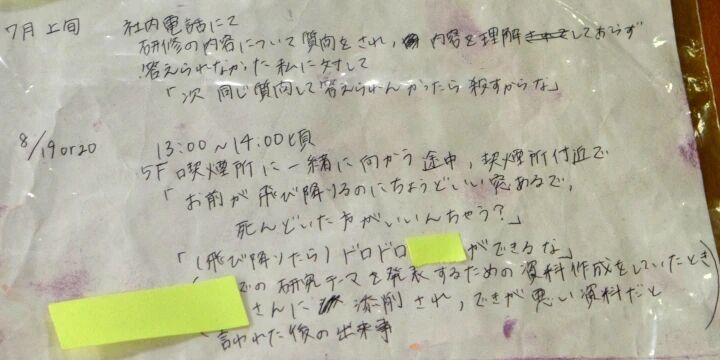 7月 上旬 社内電話にて
研修の内容について質問をされ、内容を理解しておらず
答えられなかった私に対して
「次 同じ質問して答えられんかったら殺すからな」
8/19or20 13:00〜14:00頃
5F 喫煙所に一緒に向かう途中、喫煙所付近で
「お前が飛び降りるのにちょうどいい窓あるで、
死んどいた方がいいんちゃう?」
「(飛び降りたら)ドロドロ ができるな」
での研究テーマを発表するための資料作成をしていたとき
さんに 添削され、できが悪い資料だと
言われた後の出来事